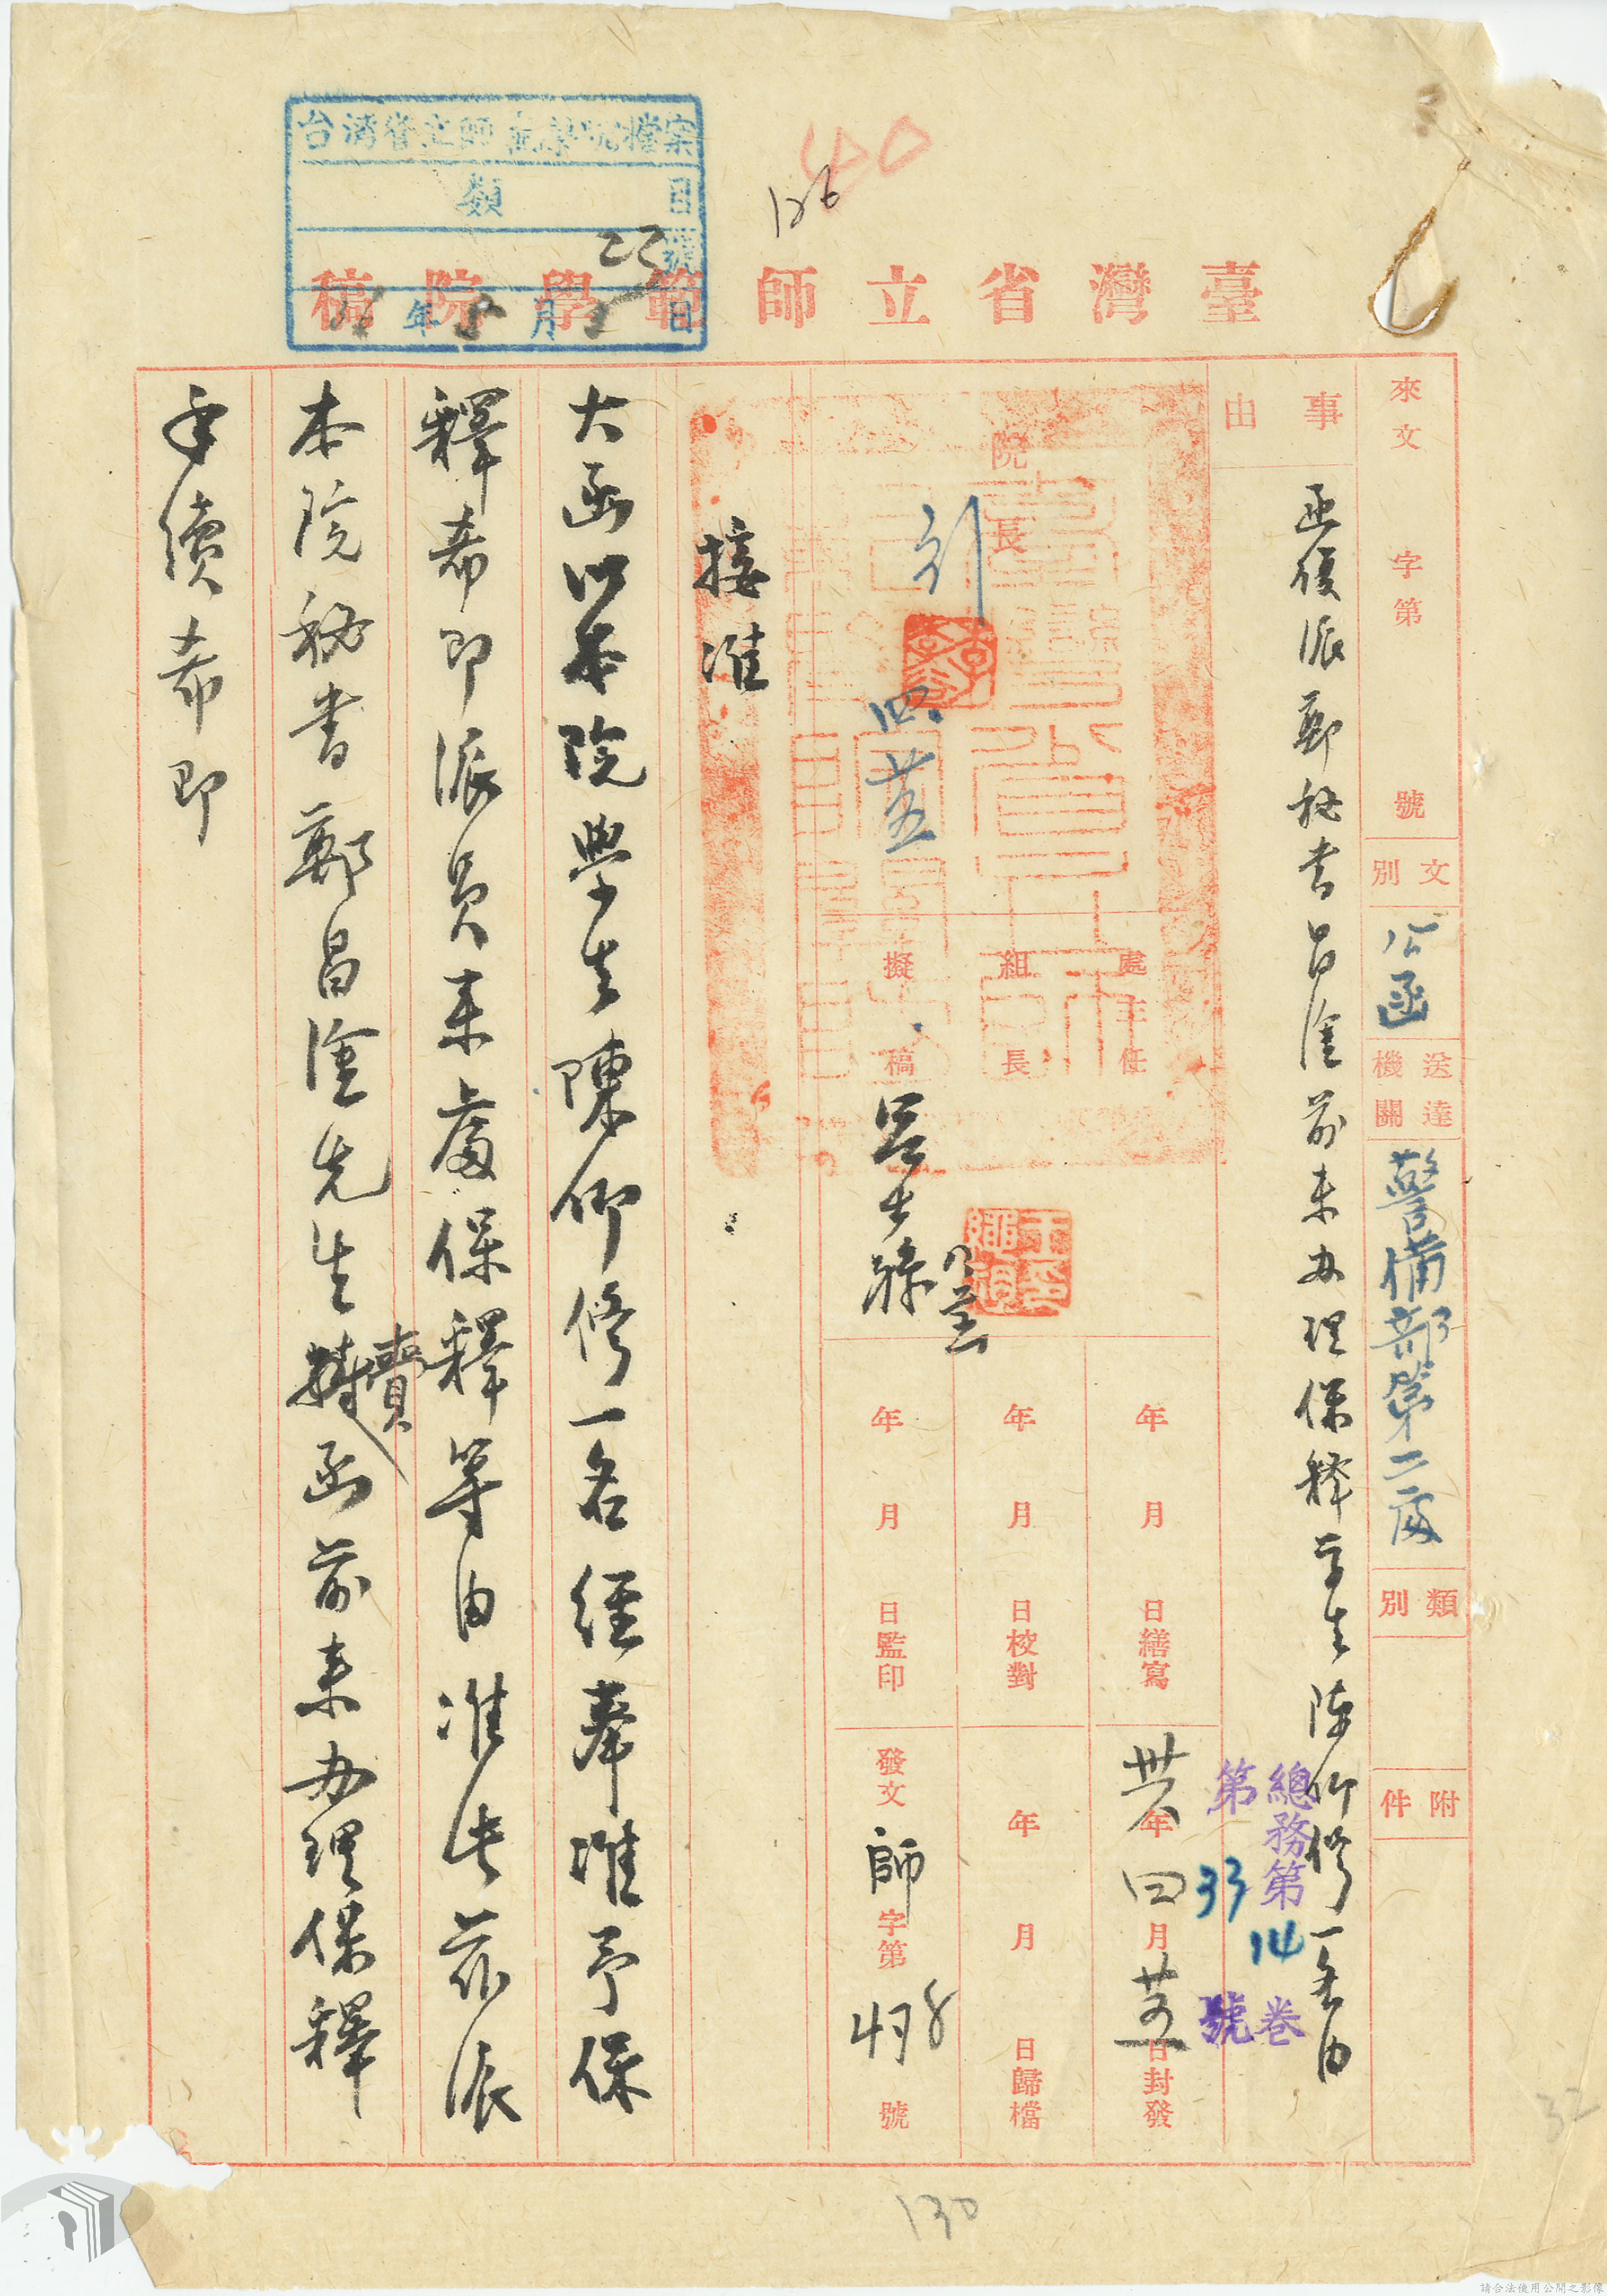 台灣省立師範學院檔案
類 目
23 號
年 8 月 日
40
126
臺灣省立師範學院稿
來文 字第 號
文別 公函
送達機關 警備部第二處
類別
附件
事由 函復派鄭秘書昌淦前來办理保释学生陳仰修一名由
總務第14卷
第33號
院長
四 廿五
處主任
組長
擬稿
年 月 日繕寫
年 月 日校對
年 月 日監印
卅八年四月廿五日封發
年 月 日歸檔
發文 師字第 號
接准
大函以本院學生陳仰修一名經奉准予保
釋希即派員来處保釋等由准此茲派
本院秘書鄭昌淦先生賫函前来办理保釋
手續希即
130
32
請合法使用公開之影像